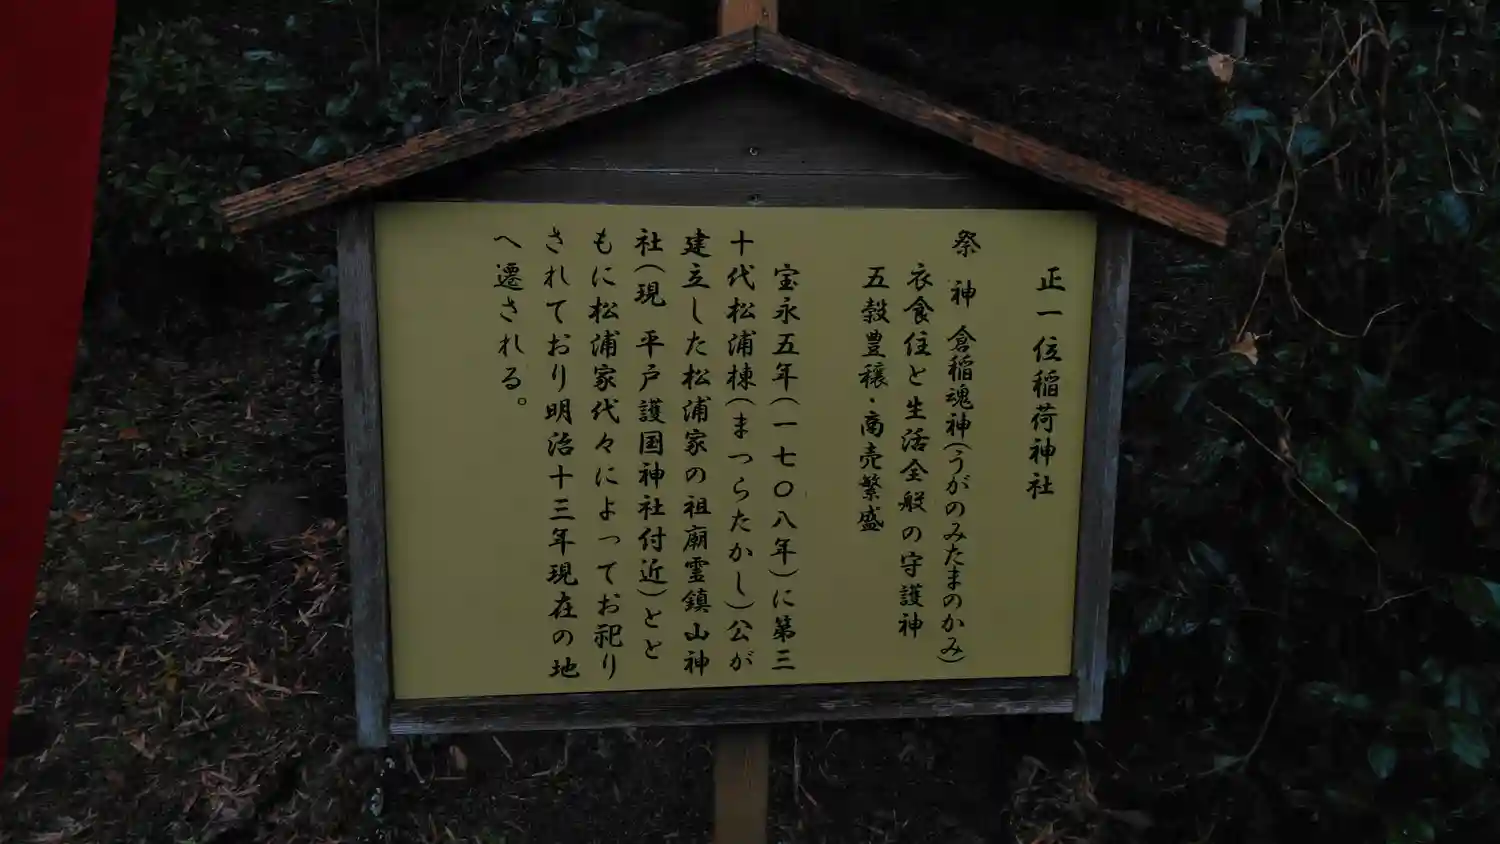 正一位稲荷神社
祭　神　倉稲魂神(うがのみたまのかみ)
衣食住と生活全般の守護神
五穀豊穣・商売繁盛
宝永五年(一七〇八年)に第三
十代松浦棟(まつらたかし)公が
建立した松浦家の祖廟霊鎮山神
社(現　平戸護国神社付近)とと
もに松浦家代々によってお祀り
されており明治十三年現在の地
へ遷される。